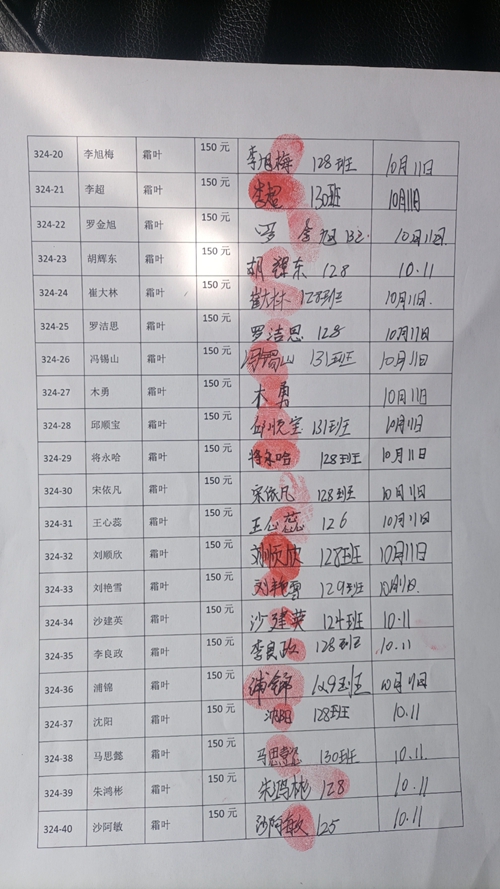 324-20 李旭梅 霜叶 150 元 李旭梅 128班 10月11日
324-21 李超 霜叶 150 元 李超 130班 10月11日
324-22 罗金旭 霜叶 150 元 罗金旭 132. 10月11日.
324-23 胡辉东 霜叶 150 元 胡辉东 128 10.11
324-24 崔大林 霜叶 150 元 崔大林 128班 10月11日.
324-25 罗洁思 霜叶 150 元 罗洁思 128 10月11日
324-26 冯锡山 霜叶 150 元 冯锡山 131班 10月11日
324-27 木勇 霜叶 150 元 木勇 10月11日
324-28 邱顺宝 霜叶 150 元 邱顺宝 131班 10月11日
324-29 将永哈 霜叶 150 元 将永哈 128班 10月11日
324-30 宋依凡 霜叶 150 元 宋依凡 128班 10月11日
324-31 王心蕊 霜叶 150 元 王心蕊 126 10月11日
324-32 刘顺欣 霜叶 150 元 刘顺欣 128班 10月11日
324-33 刘艳雪 霜叶 150 元 刘艳雪 129班 10月11日
324-34 沙建英 霜叶 150 元 沙建英 124班 10.11
324-35 李良政 霜叶 150 元 李良政 128班 10.11
324-36 浦锦 霜叶 150 元 浦锦 129班 10月11日
324-37 沈阳 霜叶 150 元 沈阳 128班 10.11
324-38 马思懿 霜叶 150 元 马思懿 130班 10.11
324-39 朱鸿彬 霜叶 150 元 朱鸿彬 128 10.11
324-40 沙阿敏 霜叶 150 元 沙阿敏 125 10.11